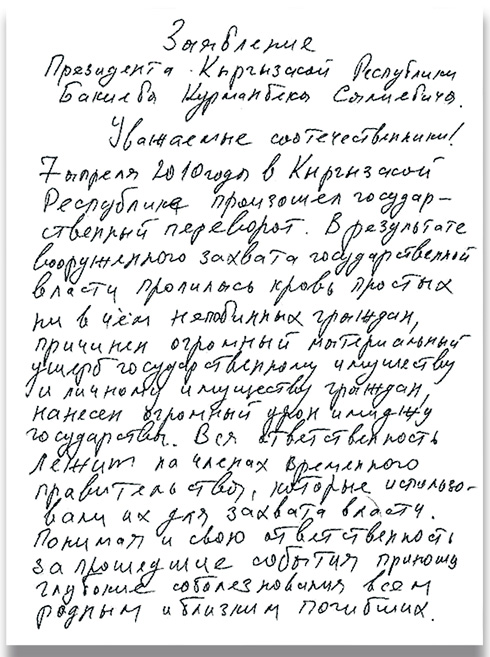 Заявление
Президента Кыргызской Республики
Бакиева Курманбека Салиевича.
Уважаемые соотечественники!
7 апреля 2010 года в Кыргызской
Республике произошел государ-
ственный переворот. В результате
вооруженного захвата государственной
власти пролилась кровь простых
ни в чём неповинных граждан,
причинен огромный материальный
ущерб государственному имуществу
и личному имуществу граждан,
нанесен огромный урон имиджу
государства. Вся ответственность
лежит на членах временного
правительства, которые использо-
вали их для захвата власти.
Понимая и свою ответственность
за прошедшие события приношу
глубокие соболезнования всем
родным и близким погибших.